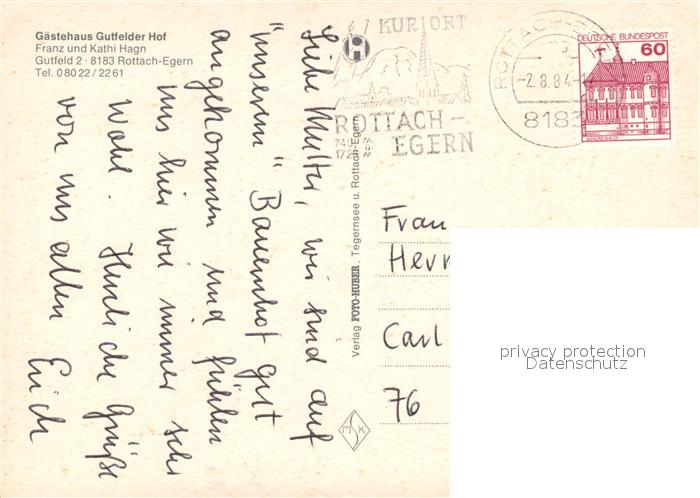 Gästehaus Gutfelder Hof
Franz und Kathi Hagn
Gutfeld 2 · 8183 Rottach-Egern
Tel. 0 80 22 / 22 61
Liebe Mutter, wir sind auf
"unserem" Bauernhof gut
angekommen und fühlen
uns hier wie immer sehr
wohl. Herzliche Grüße
von uns allen Erich
Verlag FOTO-HUBER, Tegernsee u. Rottach-Egern
KURORT
ROTTACH-
EGERN
740 m
1722 m
ROTTACH-E
-2.8.84-1
8183
DEUTSCHE BUNDESPOST
60
Frau
Herr
Carl
76
M S K
privacy protection
Datenschutz